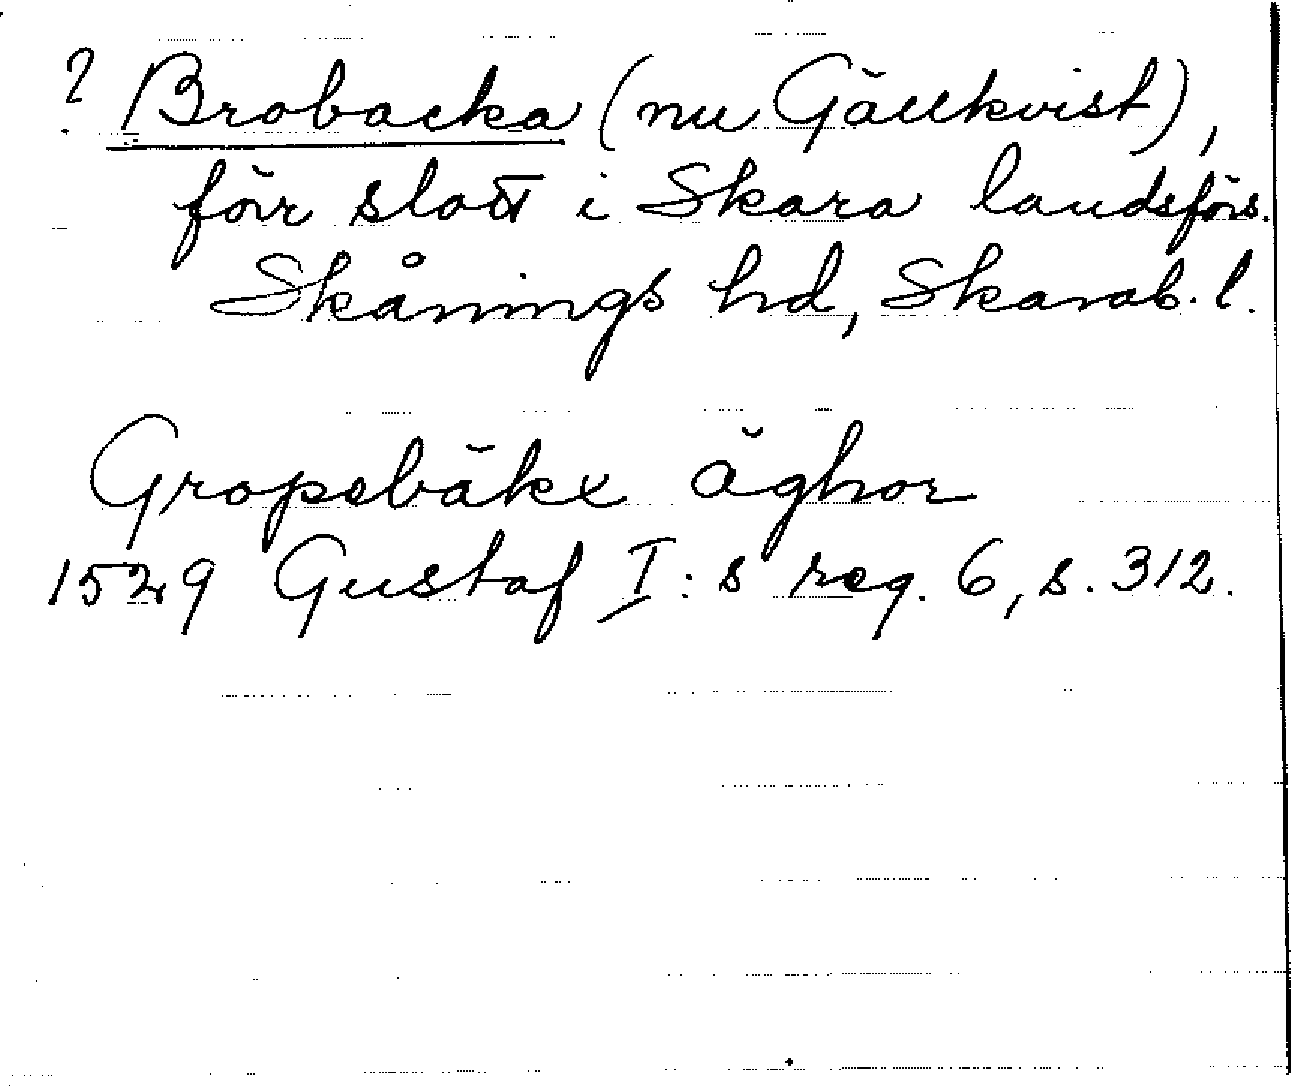 ? Brobacka (nu Gällkvist),
förr slott i Skara landsförs.
Skånings hd, Skarab. l.
Gropsbäkx äghor
1529 Gustaf I:s reg. 6, s. 312.